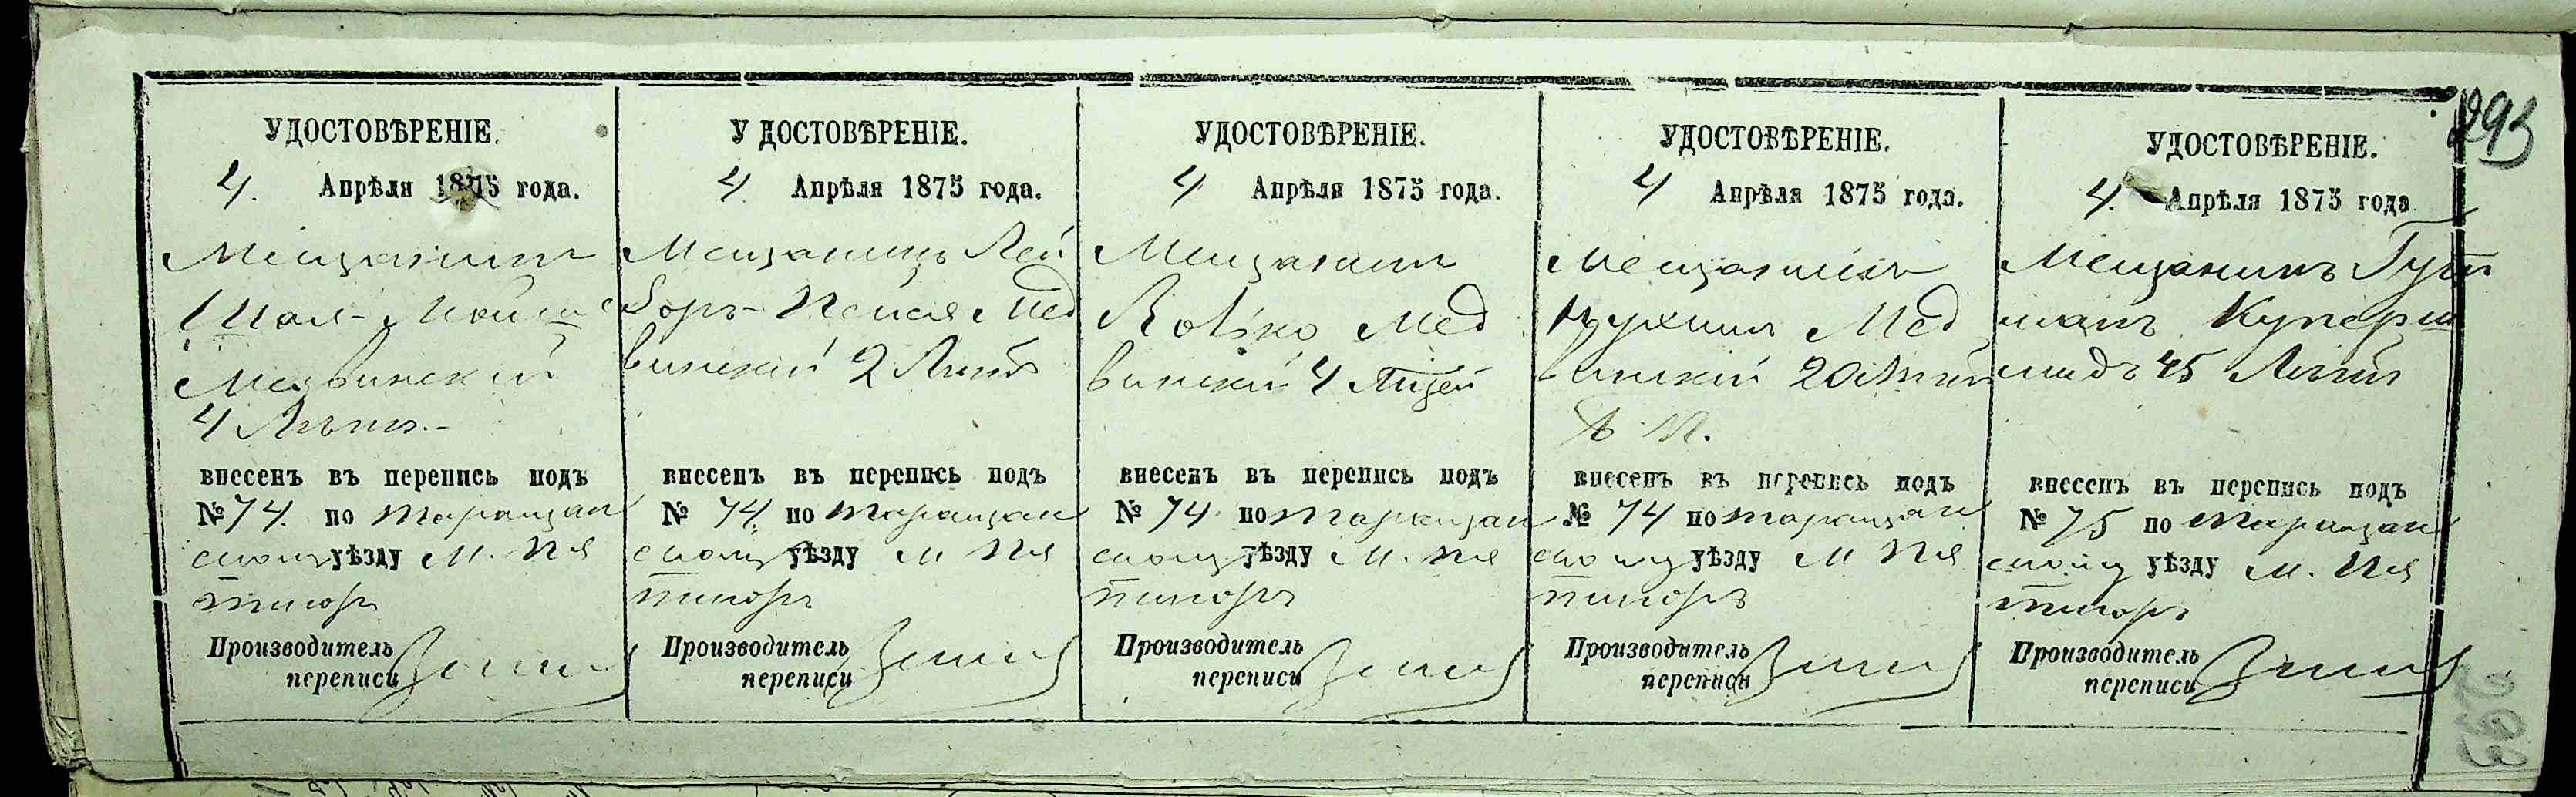 293
УДОСТОВѢРЕНІЕ.
4. Апрѣля 1875 года.
Мещанинъ
Шая-Мойше
Медвинский
4 Лѣтъ.-
внесенъ въ перепись подъ
№ 74. по Таращан
скому уѣзду М. Пя
тигоръ
Производитель
переписи
У ДОСТОВѢРЕНІЕ.
4. Апрѣля 1875 года.
Мещанинъ Лей
боръ-Пейся Мед
винскій 2 Лѣтъ
внесенъ въ перепись подъ
№ 74. по Таращан
скому уѣзду М Пя
тигоръ
Производитель
переписи
УДОСТОВѢРЕНІЕ.
4 Апрѣля 1875 года.
Мещанинъ
Мед
винскій 4
внесенъ въ перепись подъ
№ 74. по Таращан
скому уѣзду М. Пя
тигоръ
Производитель
переписи
УДОСТОВѢРЕНІЕ.
4 Апрѣля 1875 года.
Мещанинъ
Нухимъ Мед
винскій 20 Лѣтъ
внесенъ въ перепись подъ
№ 74 по Таращан
скому уѣзду М Пя
тигоръ
Производитель
переписи
УДОСТОВѢРЕНІЕ.
4. Апрѣля 1875 года
Мещанинъ Гут
манъ Куперш
мидъ 45 Лѣтъ
внесенъ въ перепись подъ
№ 75 по Таращан
скому уѣзду М. Пя
тигоръ
Производитель
переписи